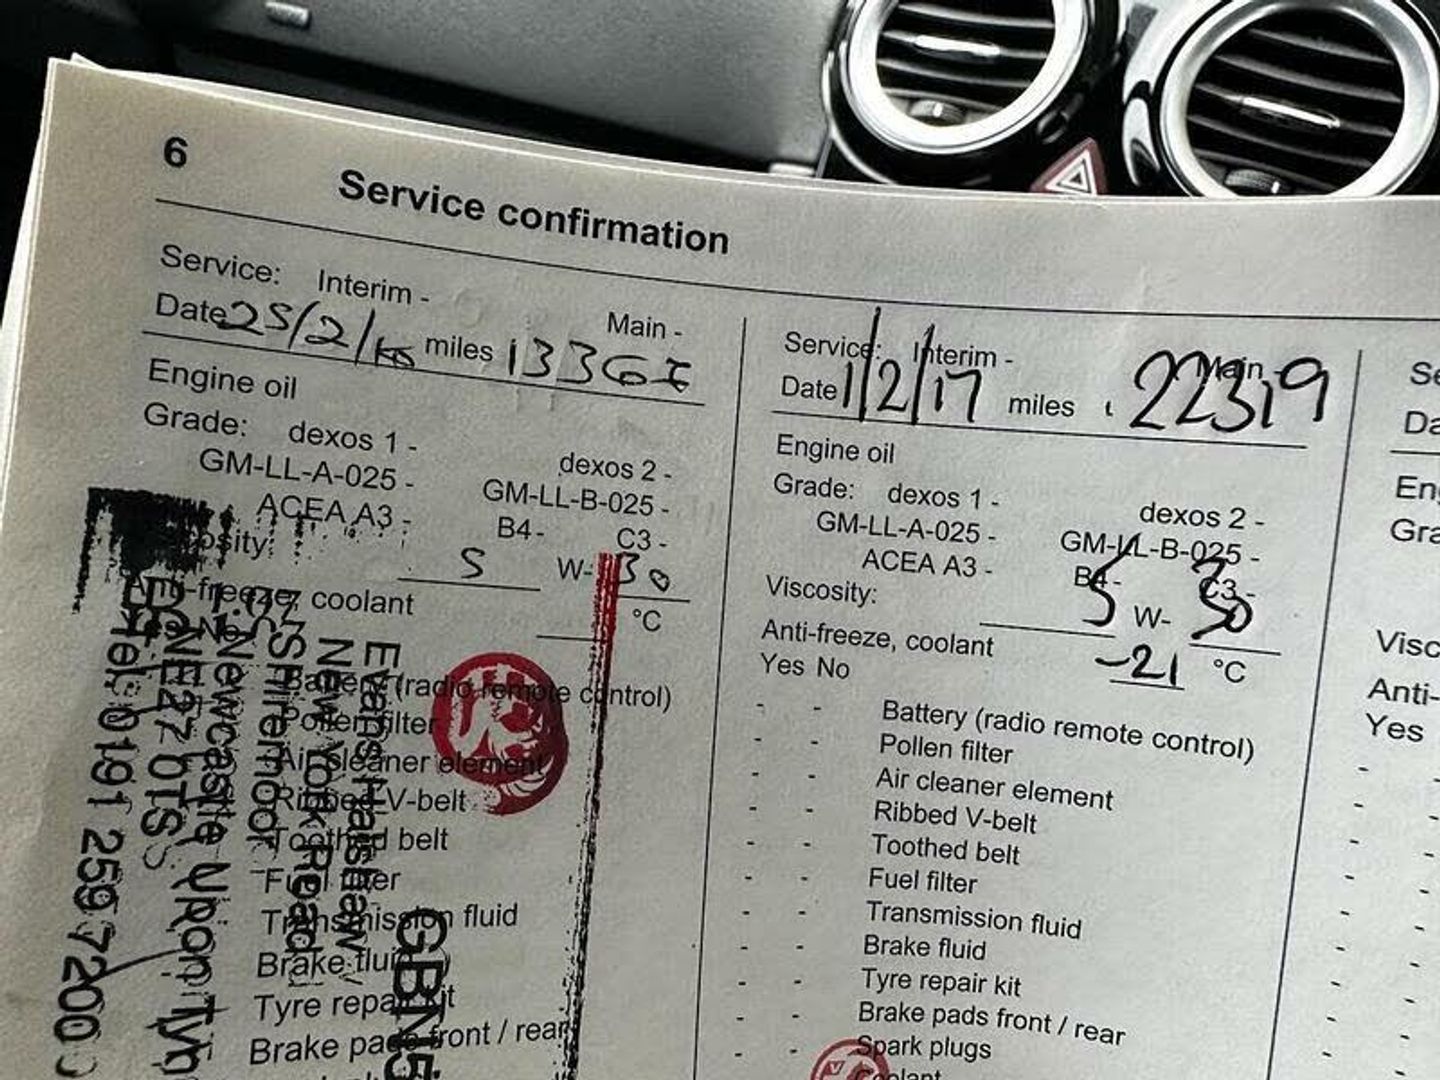 6
Service confirmation
Service: Interim -
Main -
Date 25/2/ miles
Engine oil
Grade: dexos 1 -
dexos 2 -
GM-LL-A-025 -
GM-LL-B-025 -
ACEA A3 -
B4 -
C3 -
5 W- 30
Anti-freeze, coolant
°C
Battery (radio remote control)
Pollen filter
Air cleaner element
Ribbed V-belt
Toothed belt
Fuel filter
Transmission fluid
Brake fluid
Tyre repair kit
Brake pads front / rear
Evans Halshaw
New York Road
Shiremoor
Newcastle Upon Tyn
NE27 0TS
Tel: 0191 259 7200
GBN5
Service: Interim -
Main -
Date 1/2/17 miles 22319
Engine oil
Grade: dexos 1 -
dexos 2 -
GM-LL-A-025 -
GM-LL-B-025 -
ACEA A3 -
B4 -
C3 -
Viscosity:
5 W- 30
Anti-freeze, coolant
-21 °C
Yes No
- - Battery (radio remote control)
- - Pollen filter
- - Air cleaner element
- - Ribbed V-belt
- - Toothed belt
- - Fuel filter
- - Transmission fluid
- - Brake fluid
- - Tyre repair kit
- - Brake pads front / rear
- - Spark plugs
Coolant
Se
Da
Eng
Gra
Visc
Anti-
Yes